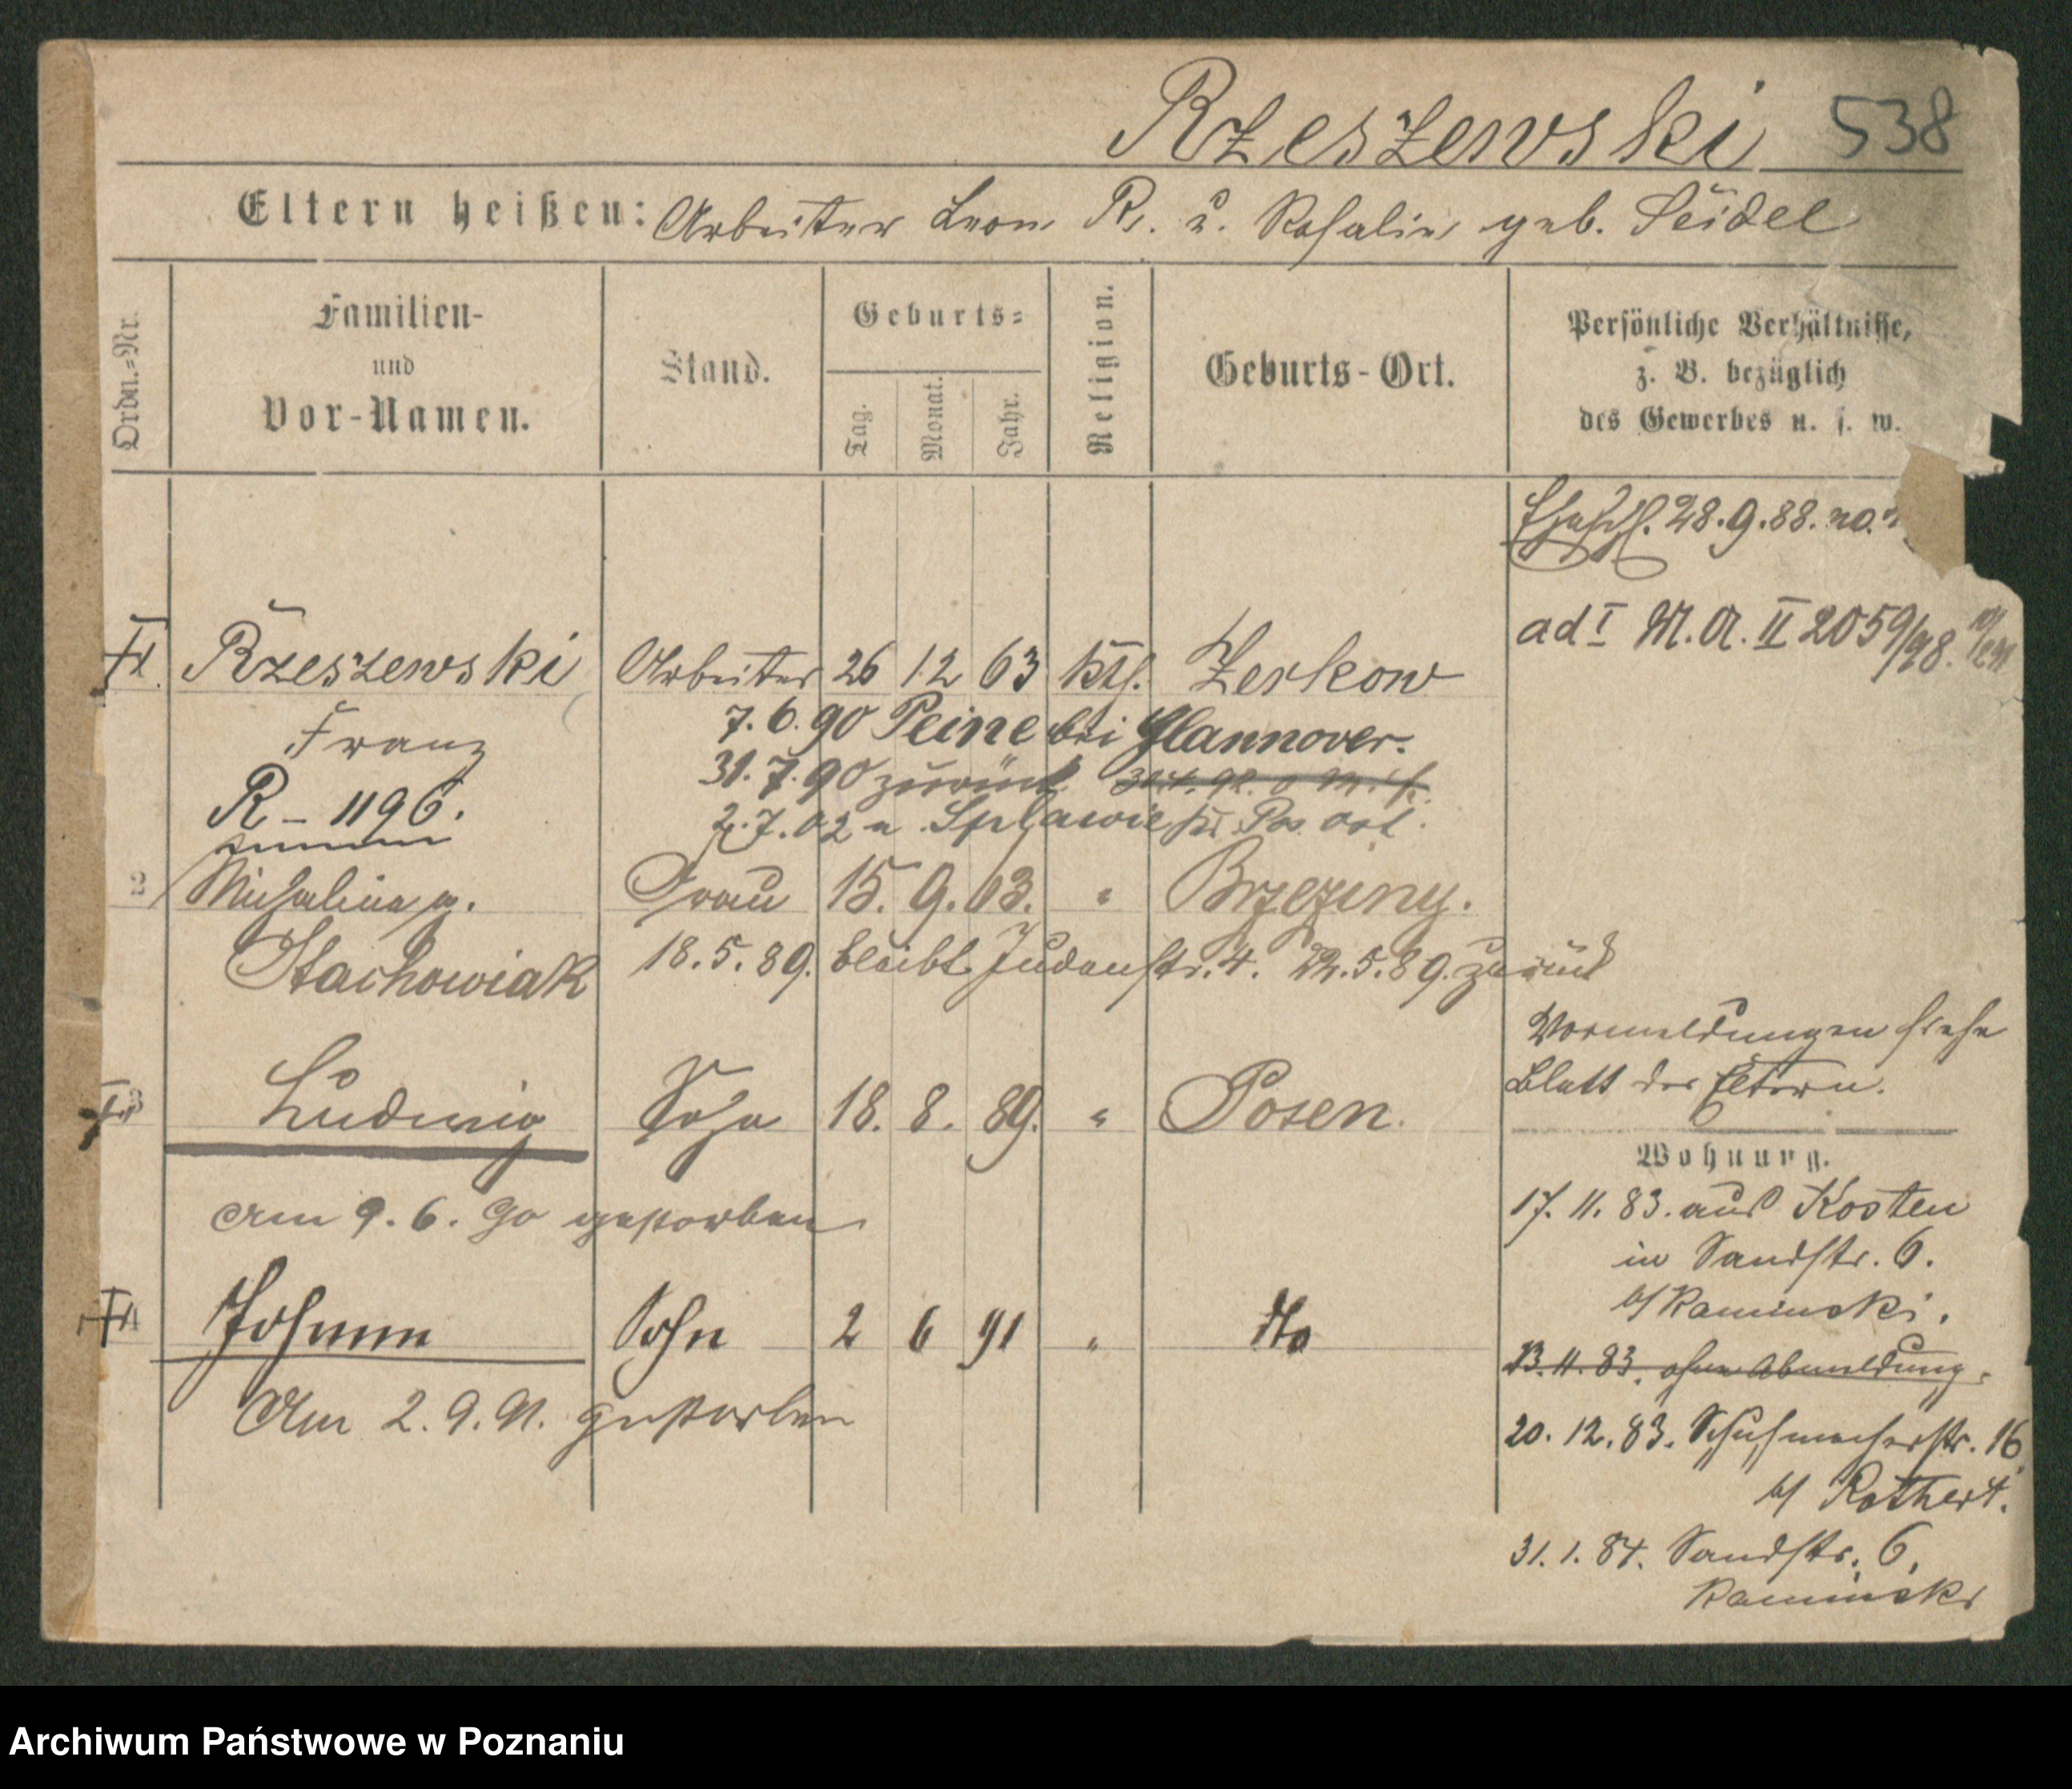 Rzeszewski 538
Eltern heißen: Arbeiter Leon R. u. Rosalie geb. Seidel
Ordn.=Nr.
Familien-
und
Vor-Namen.
Stand.
Geburts=
Tag.
Monat.
Jahr.
Religion.
Geburts-Ort.
Persönliche Verhältnisse,
z. B. bezüglich
des Gewerbes u. s. w.
28.9.88. no.
ad I M. A. II 2059/98.
Rzeszewski Arbeiter 26 12 63 kth. Zerkow
Franz 7.6.90 Peine bei Hannover.
31.7.90 zurück
R – 1196.
2.7.02 n. Splawie Kr. Pos. Ost.
2 Michalina g. Frau 15. 9. 63. " Brzeziny.
Stachowiak 18.5.89. bleibt Judenstr. 4. 22.5.89. zurück
Vormeldungen siehe
Blatt der Eltern.
3 Ludwig Sohn 18. 8. 89. " Posen.
Am 9.6.90 gestorben
Johann Sohn 2 6 91 " do
Am 2.9.91. gestorben
Wohnung.
17.11.83. aus Kosten
in Sandstr. 6.
b/ Kaminski.
13.11.83. ohne Abmeldung.
20.12.83. Schuhmacherstr. 16
b/ Rothert.
31.1.84. Sandstr. 6.
Kaminski
Archiwum Państwowe w Poznaniu